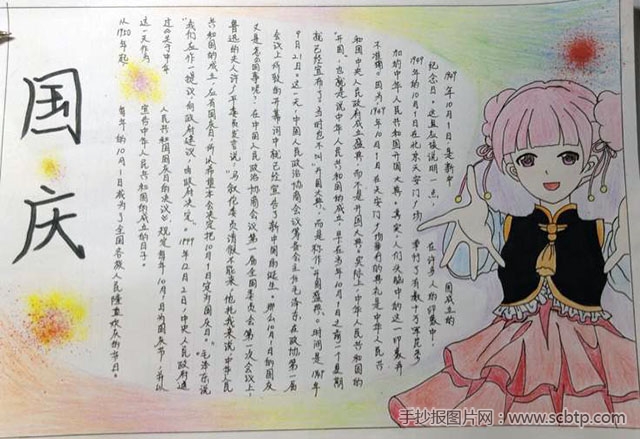 国庆
1949年10月1日是新中 国成立的
纪念日。这里应该说明一点, 在许多人的印象中,
1949年的10月1日在北京天安门广场 举行了有数十万军民参
加的中华人民共和国开国大典。其实,人们头脑中的这一印象并
不准确。因为,1949年10月1日在天安门广场举行的典礼是中华人民共
和国中央人民政府成立盛典,而不是开国大典。实际上,中华人民共和国的
“开国”,也就是说中华人民共和国的成立,早在当年10月1日之前一个星期
就已经宣布了。当时也不叫“开国大典”,而是称作“开国盛典”。时间是1949年
9月21日。这一天,中国人民政治协商会议筹备会主任毛泽东在政协第一届
会议上所致的开幕词中就已经宣告了新中国的诞生。那么10月1日的国庆
又是怎么回事呢?在中国人民政治协商会议第一届全国委员会第一次会议上,
鲁迅的夫人许广平委员发言说:“马叙伦委员请假不能来,他托我来说,中华人民
共和国的成立,应有国庆日,所以希望本会决定把10月1日定为国庆日。”毛泽东说
“我们应作一提议,向政府建议,由政府决定。”1949年12月2日,中央人民政府通
过的《关于中华 人民共和国国庆日的决议》规定,每年10月1日为国庆节,并以
这一天作为 宣告中华人民共和国的成立的日子。
从1950年起 每年的10月1日成为了全国各族人民隆重欢庆的节日。
手抄报图片网:www.scbtp.com